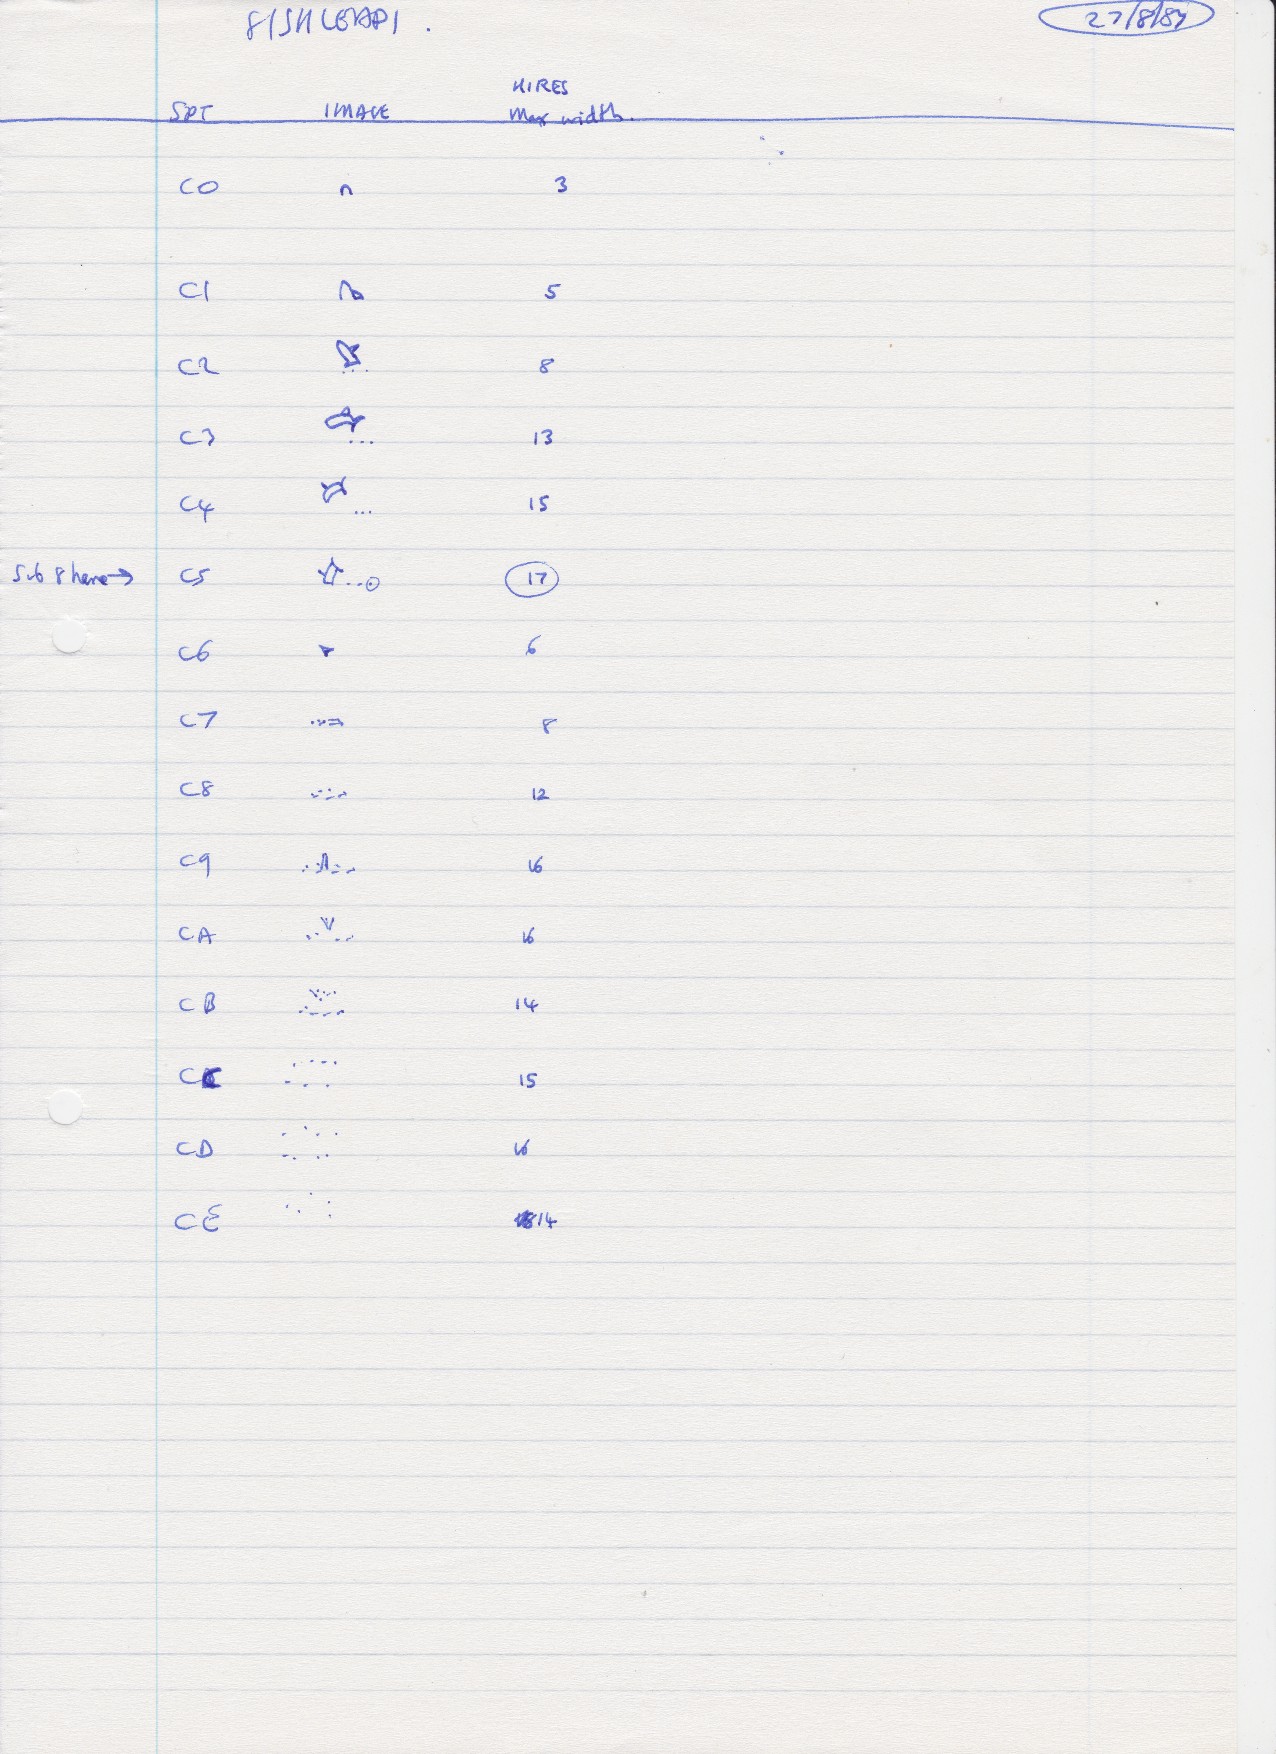 27/8/84
HIRES
SPT IMAGE Max width.
C0 3
C1 5
C2 8
C3 13
C4 15
Sub 8 here → C5 17
C6 6
C7 8
C8 12
C9 16
CA 16
CB 14
CC 15
CD 16
CE 14